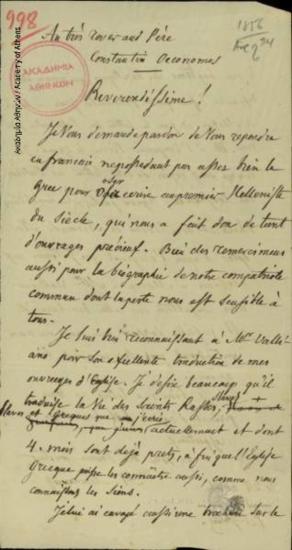 998
1856
Au très révérend Père
Constantin Oeconomos
ΑΚΑΔΗΜΙΑ
ΑΘΗΝΩΝ
Ακαδημία Αθηνών / Academy of Athens
Reverendissime!
Je Vous demande pardon de Vous repondre
en francois ne possedant pas assez bien le
Grec pour oser ecrire au premier Helleniste
du Siècle, qui nous a fait don de tant
d'ouvrages precieux. Bien des remercimens
aussi pour la biographie de notre compatriote
commun dont la perte nous est sensible à
tous.
Je suis bien reconnaissant à Mr. Valli-
ano pour son excellente traduction de mes
ouvrages d'Eglise. Je desire beaucoup qu'il
traduise la Vie des Saints Russes,
et Grecques que
actuellement et dont
4. mois sont dejà prets, afin que l'Eglise
Grecque puisse les connaitre aussi, comme nous
connaissons les Siens.
Je lui ai envoyé aussi une brochure sur le